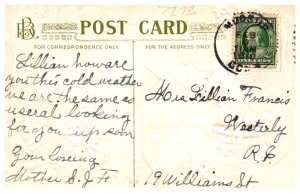 7173
BB POST CARD
FOR CORRESPONDENCE ONLY
FOR THE ADDRESS ONLY
Lillian how are
you this cold weather
we are the same as
useral looking
for you up soon
Your loveing
Mother S.J.F.
Miss Lillian Francis
Westerly
R.I.
19 Williams St